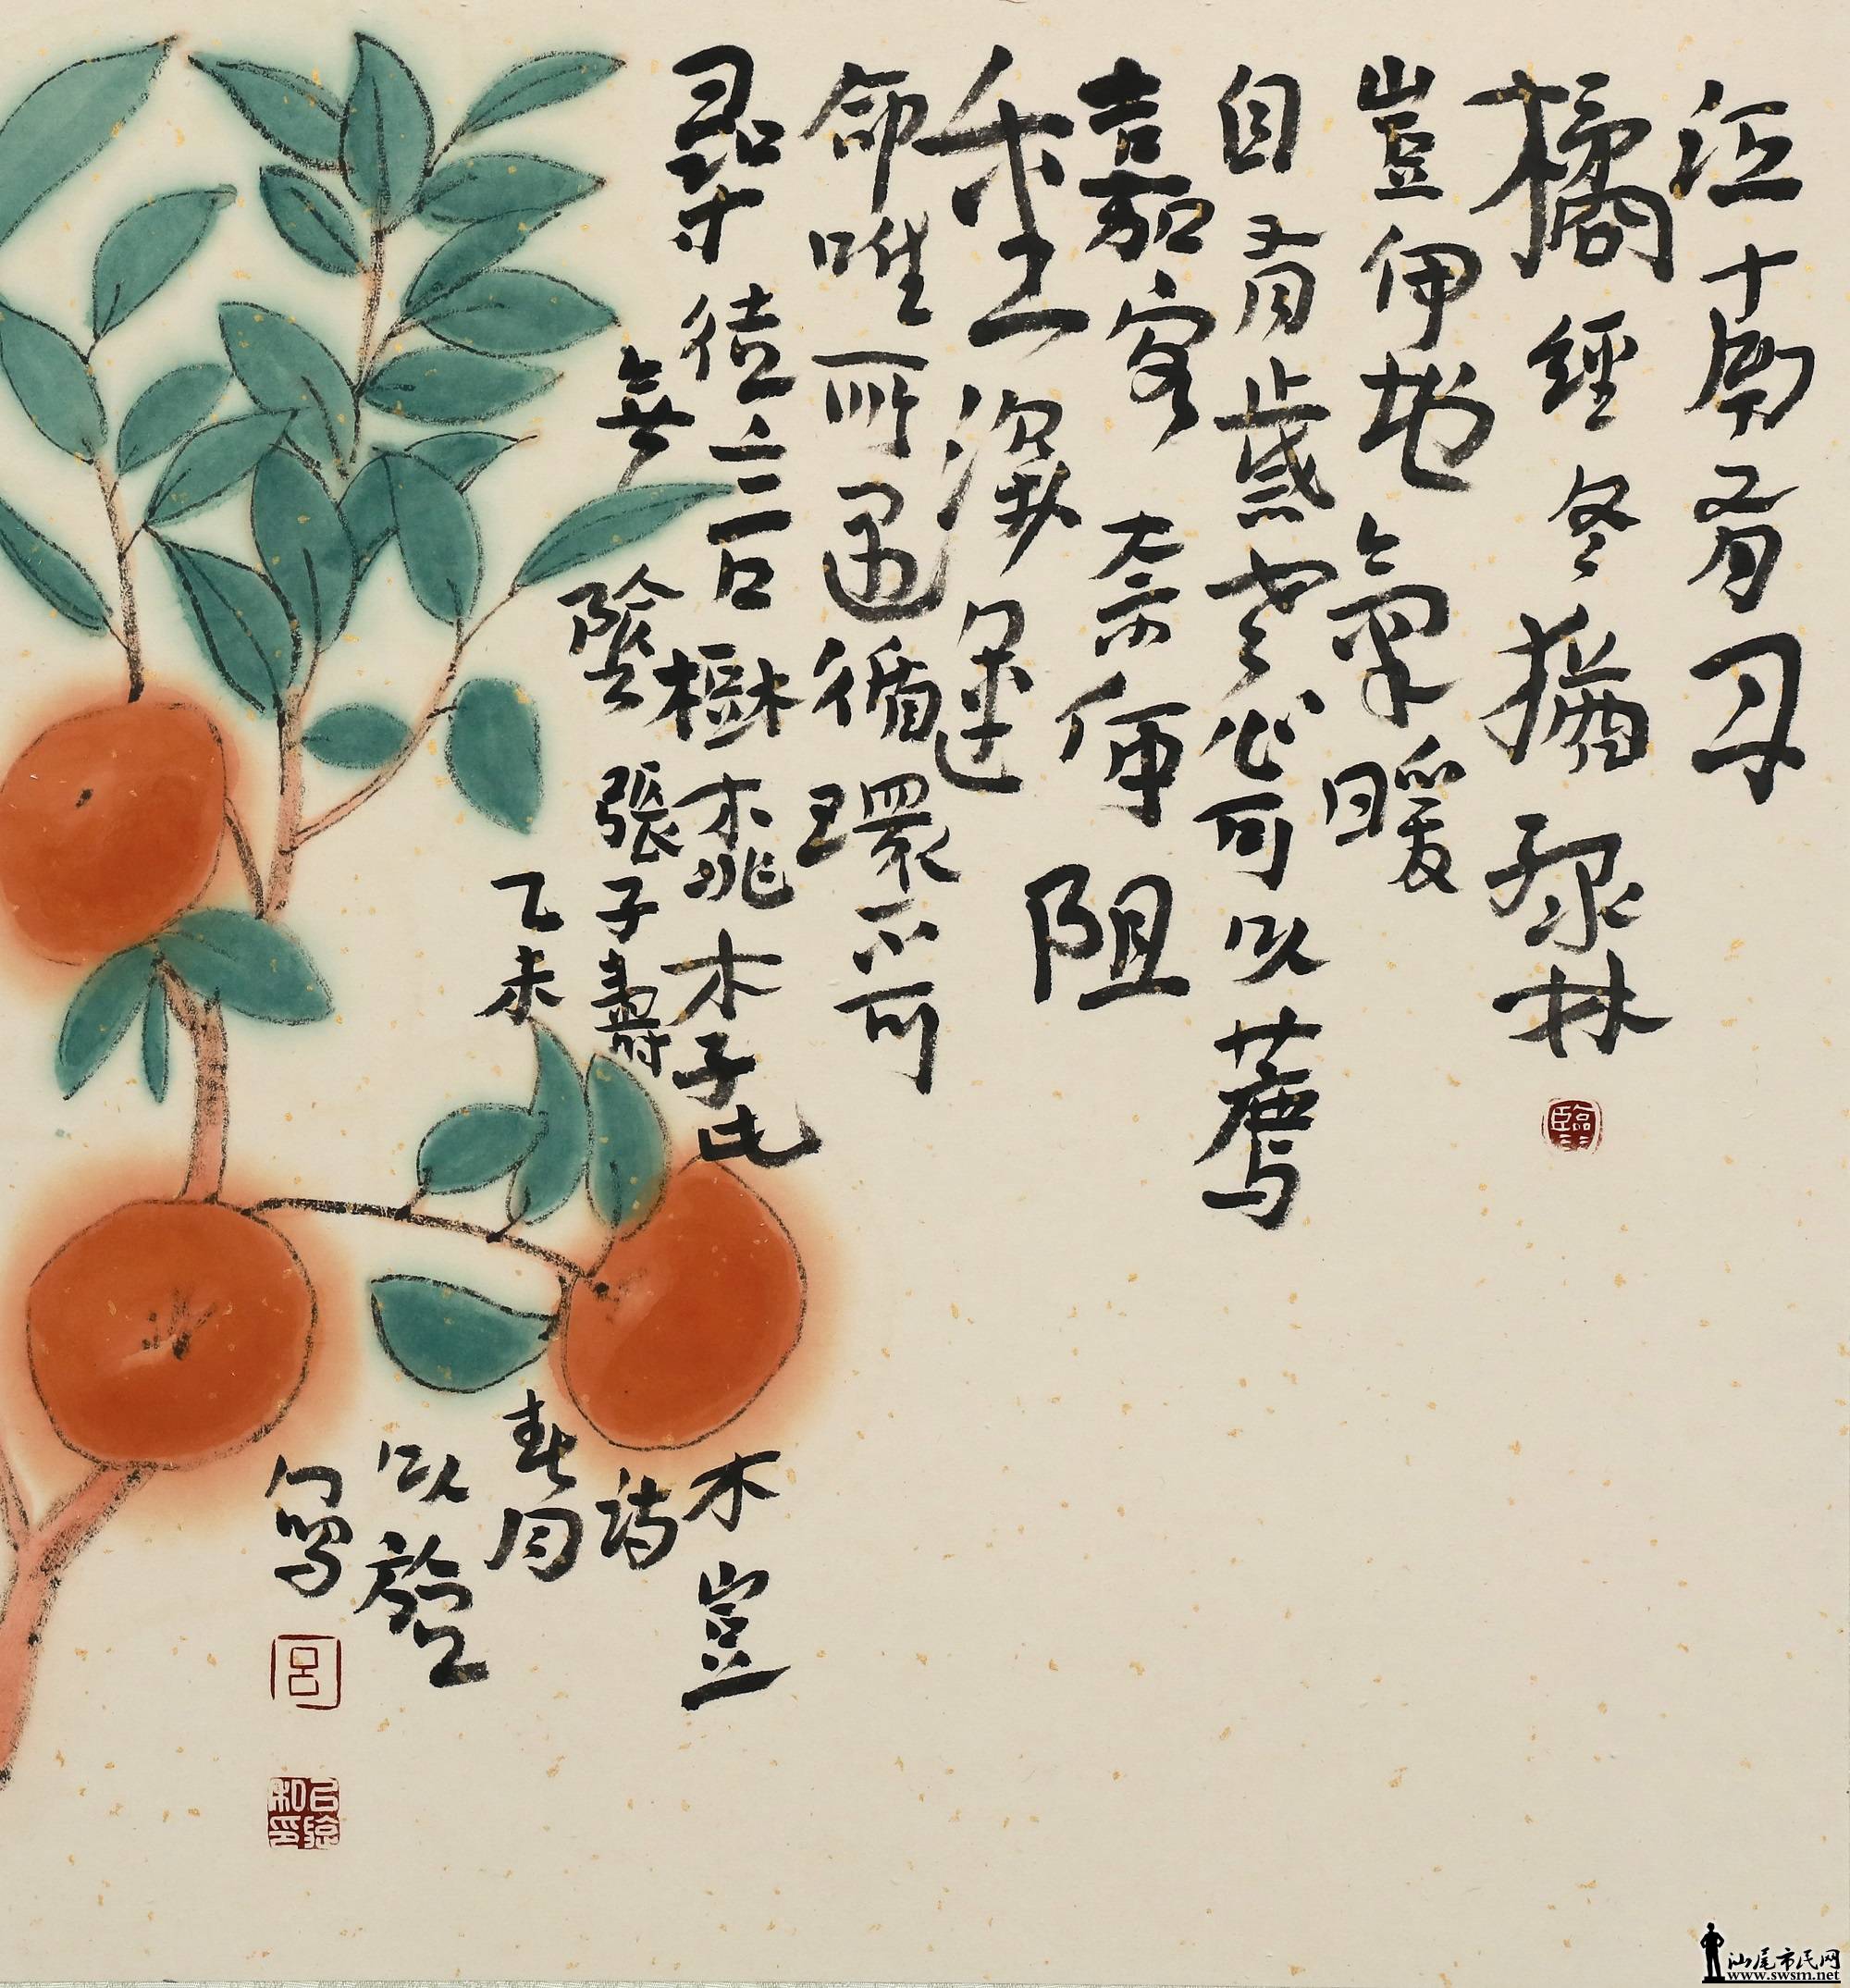 江南有丹
橘經冬猶綠林
豈伊地氣暖
自有歲寒心可以薦
嘉客奈何阻
重深運
命唯所遇循環不可
尋徒言樹桃李此木豈
無陰張子壽詩
乙未春月
以
寫
呂
汕尾市民网
www.swsm.net